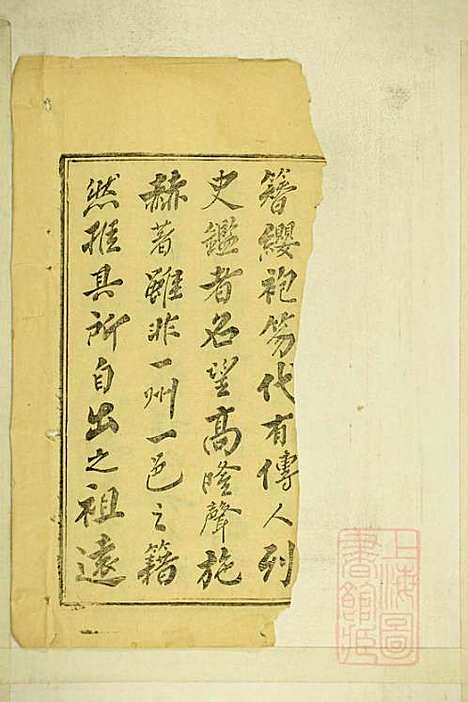 簪纓袍笏代有傳人列
史鑑者名望高隆聲施
赫著雖非一州一邑之籍
然推其所自出之祖遠
上海圖
書館藏